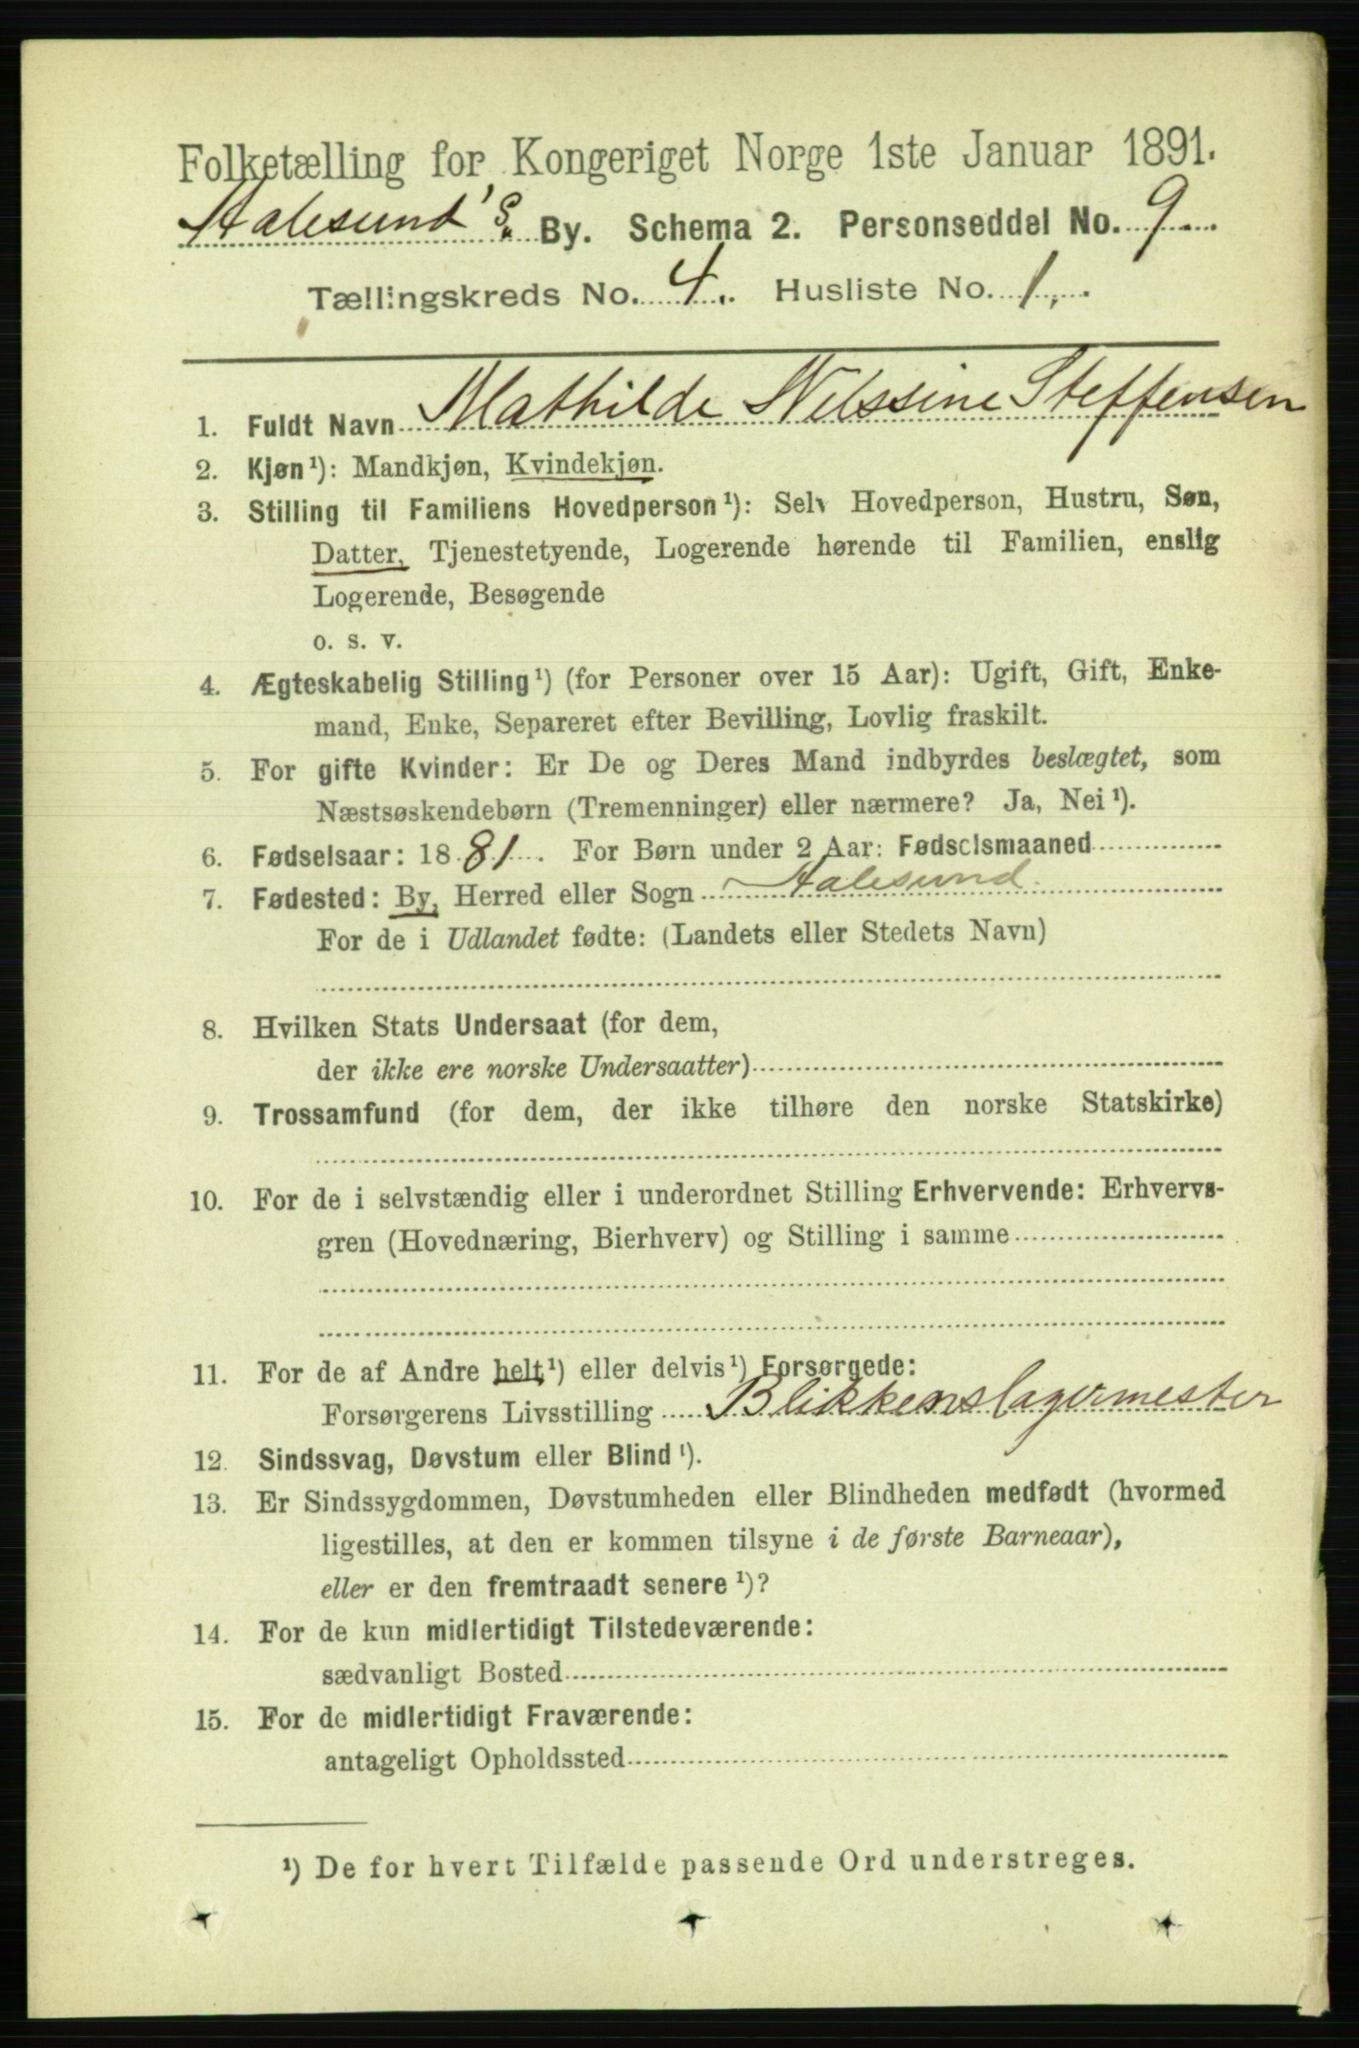 Folketælling for Kongeriget Norge 1ste Januar 1891.
Aalesund's By. Schema 2. Personseddel No. 9
Tællingskreds No. 4. Husliste No. 1.
1. Fuldt Navn Mathilde Nelssine Steffensen
2. Kjøn¹): Mandkjøn, Kvindekjøn.
3. Stilling til Familiens Hovedperson¹): Selv Hovedperson, Hustru, Søn,
Datter, Tjenestetyende, Logerende hørende til Familien, enslig
Logerende, Besøgende
o. s. v.
4. Ægteskabelig Stilling¹) (for Personer over 15 Aar): Ugift, Gift, Enke-
mand, Enke, Separeret efter Bevilling, Lovlig fraskilt.
5. For gifte Kvinder: Er De og Deres Mand indbyrdes beslægtet, som
Næstsøskendebørn (Tremenninger) eller nærmere? Ja, Nei¹).
6. Fødselsaar: 1881. For Børn under 2 Aar: Fødselsmaaned
7. Fødested: By, Herred eller Sogn Aalesund.
For de i Udlandet fødte: (Landets eller Stedets Navn)
8. Hvilken Stats Undersaat (for dem,
der ikke ere norske Undersaatter)
9. Trossamfund (for dem, der ikke tilhøre den norske Statskirke)
10. For de i selvstændig eller i underordnet Stilling Erhvervende: Erhvervs-
gren (Hovednæring, Bierhverv) og Stilling i samme
11. For de af Andre helt¹) eller delvis¹) Forsørgede:
Forsørgerens Livsstilling Blikkenslagermester
12. Sindssvag, Døvstum eller Blind¹).
13. Er Sindssygdommen, Døvstumheden eller Blindheden medfødt (hvormed
ligestilles, at den er kommen tilsyne i de første Barneaar),
eller er den fremtraadt senere¹)?
14. For de kun midlertidigt Tilstedeværende:
sædvanligt Bosted
15. For de midlertidigt Fraværende:
antageligt Opholdssted
¹) De for hvert Tilfælde passende Ord understreges.